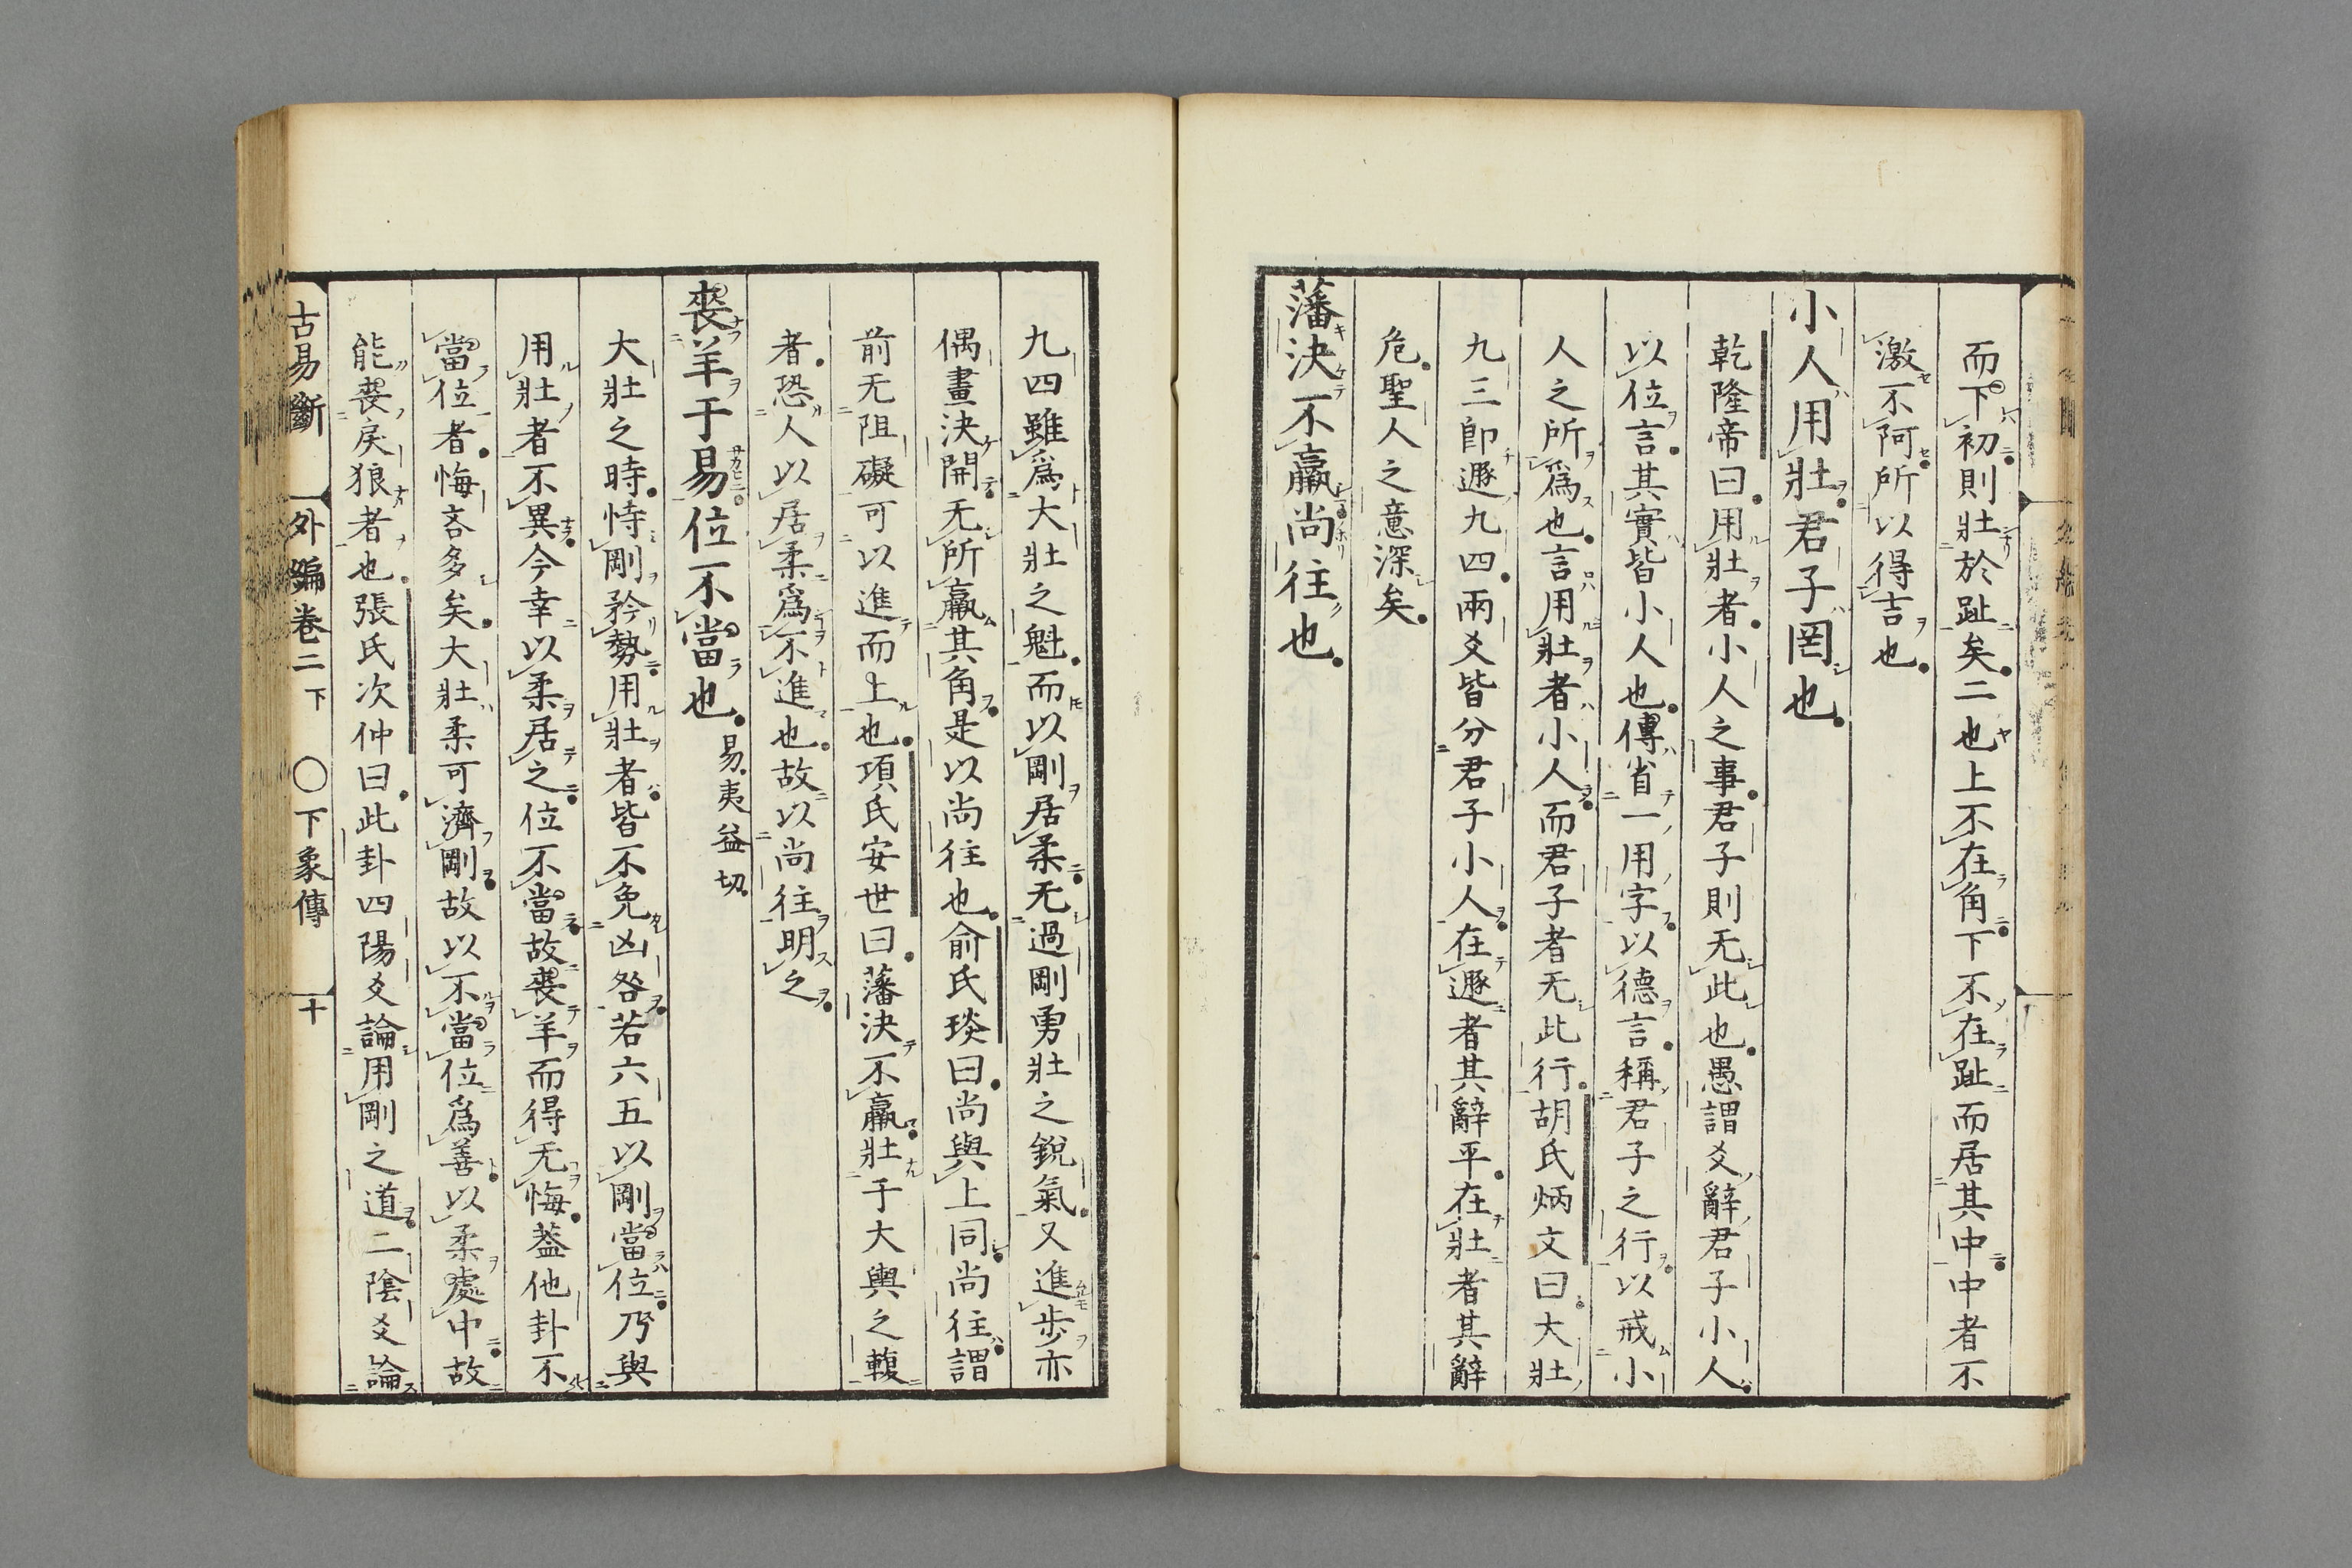 而下初則壯於趾矣二也上不在角下不在趾而居其中中者不
激不阿所以得吉也
小人用壯君子罔也
乾隆帝曰用壯者小人之事君子則无此也愚謂爻辭君子小人
以位言其實皆小人也傳省一用字以德言稱君子之行以戒小
人之所爲也言用壯者小人而君子者无此行胡氏炳文曰大壯
九三卽遯九四兩爻皆分君子小人在遯者其辭平在壯者其辭
危聖人之意深矣
藩決不羸尚往也
九四雖爲大壯之魁而以剛居柔无過剛勇壯之銳氣又進步亦
偶畫決開无所羸其角是以尚往也俞氏琰曰尚與上同尚往謂
前无阻礙可以進而上也項氏安世曰藩決不羸壯于大輿之輹
者恐人以居柔爲不進也故以尚往明之
喪羊于易位不當也易夷益切
大壯之時恃剛矜勢用壯者皆不免凶咎若六五以剛當位乃與
用壯者不異今幸以柔居之位不當故喪羊而得无悔葢他卦不
當位者悔吝多矣大壯柔可濟剛故以不當位爲善以柔處中故
能喪戾狼者也張氏次仲曰此卦四陽爻論用剛之道二陰爻論
古易斷 外編卷二下 〇下象傳 十